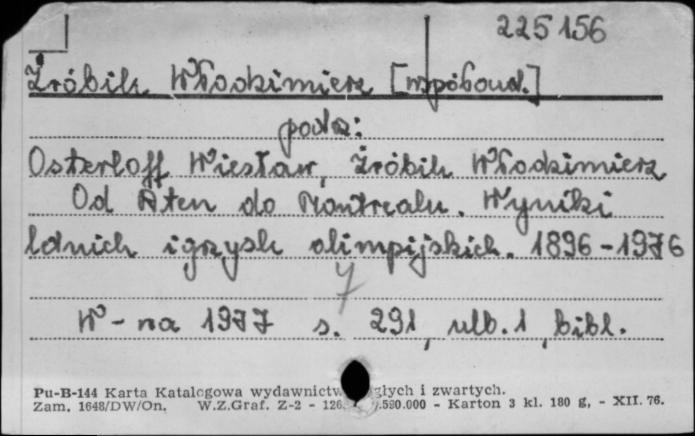 225156
Źróbik Włodzimierz [współaut.]
podz:
Osterloff Wiesław, Źróbik Włodzimierz
Od Aten do Montrealu. Wyniki
letnich igrzysk olimpijskich. 1896-1976
7
W-wa 1977 s. 291, ulb. 1, bibl.
Pu-B-144 Karta Katalogowa wydawnictw i zwartych.
Zam. 1648/DW/On. W.Z.Graf. Z-2 - Karton 3 kl. 180 g, - XII. 76.